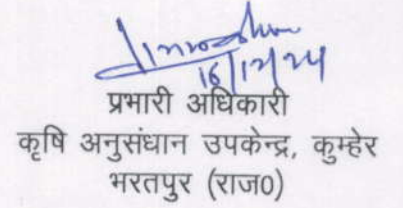 16/12/24
प्रभारी अधिकारी
कृषि अनुसंधान उपकेन्द्र, कुम्हेर
भरतपुर (राज0)